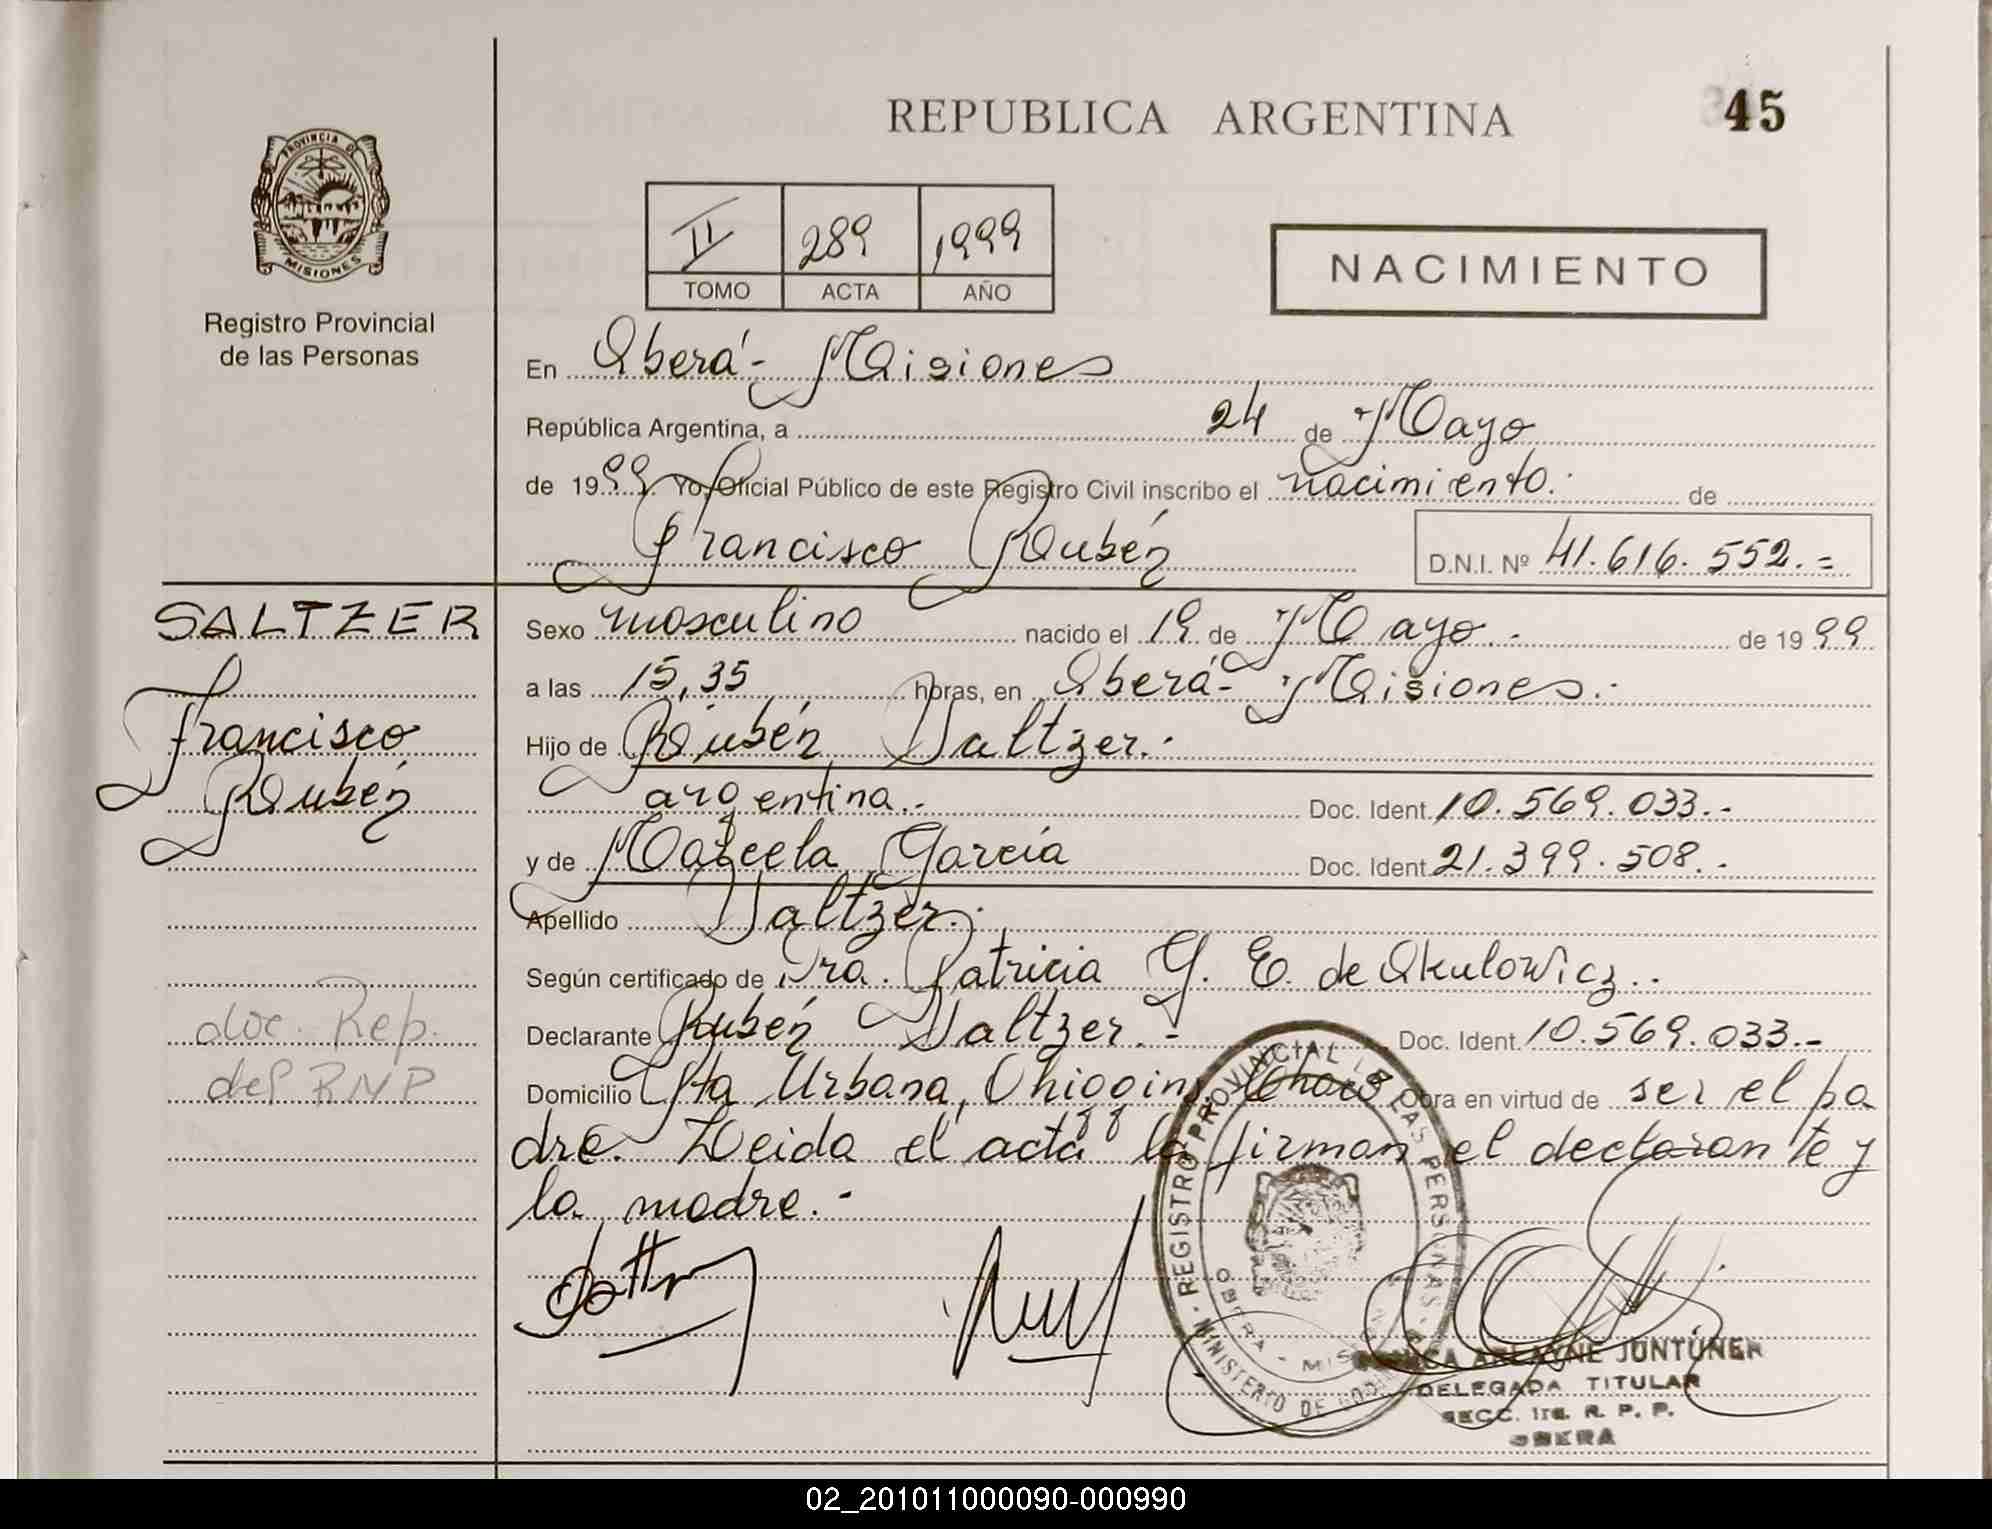 REPUBLICA ARGENTINA
45
PROVINCIA DE
MISIONES
Registro Provincial
de las Personas
II 289 1999
TOMO ACTA AÑO
NACIMIENTO
En Oberá - Misiones
República Argentina, a 24 de Mayo
de 1999. Yo, Oficial Público de este Registro Civil inscribo el nacimiento. de
Francisco Rubén
D.N.I. Nº 41.616.552.=
SALTZER
Francisco
Rubén
doc. Rep.
del RNP
Sexo masculino nacido el 19 de Mayo. de 1999
a las 15,35 horas, en Oberá - Misiones.-
Hijo de Rubén Saltzer.-
argentina.- Doc. Ident. 10.569.033.-
y de Marcela García Doc. Ident. 21.399.508.-
Apellido Saltzer.-
Según certificado de Dra. Patricia G. E. de Okulowicz.-
Declarante Rubén Saltzer.- Doc. Ident. 10.569.033.-
Domicilio Pta Urbana, Ohiggins, Chaco Obra en virtud de ser el pa
dre. Leida el acta la firman el declarante y
la madre.-
REGISTRO PROVINCIAL DE LAS PERSONAS
MINISTERIO DE
OBERA - MISIONES
ARLAYNE JONTUNEN
DELEGADA TITULAR
SECC. 1ra. R. P. P.
OBERA
02_201011000090-000990